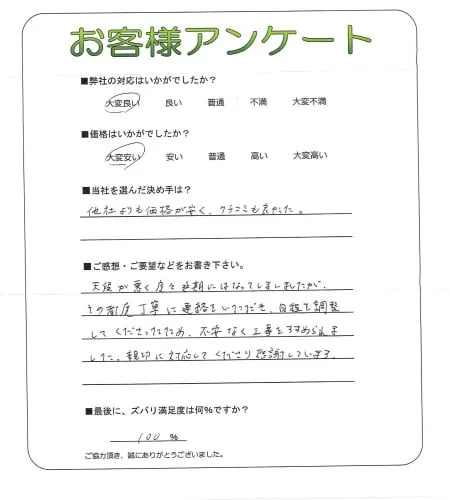 お客様アンケート
■弊社の対応はいかがでしたか?
大変良い 良い 普通 不満 大変不満
■価格はいかがでしたか?
大変安い 安い 普通 高い 大変高い
■当社を選んだ決め手は?
他社よりも価格が安く、クチコミも良かった。
■ご感想・ご要望などをお書き下さい。
天候が悪く度々延期にはなってしましましたが、
その都度丁寧に連絡をいただき、日程を調整
してくださったため、不安なく工事をすすめられま
した。親切に対応してくださり感謝しています。
■最後に、ズバリ満足度は何%ですか?
100 %
ご協力頂き、誠にありがとうございました。